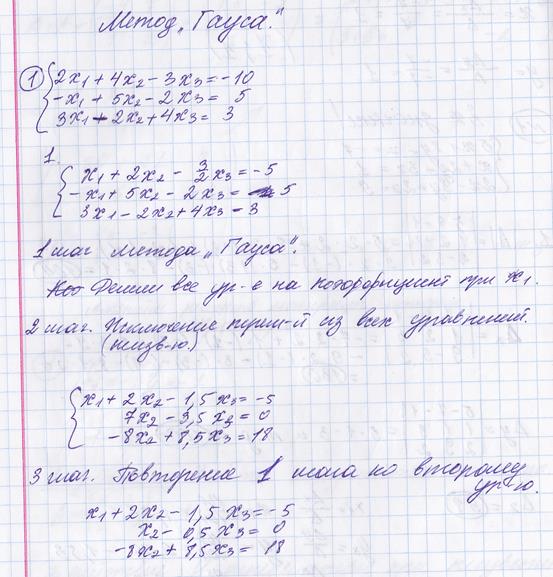 Метод „Гауса."
1 2x₁ + 4x₂ - 3x₃ = -10
-x₁ + 5x₂ - 2x₃ = 5
3x₁ - 2x₂ + 4x₃ = 3
1.
x₁ + 2x₂ - 3/2 x₃ = -5
-x₁ + 5x₂ - 2x₃ = 5
3x₁ - 2x₂ + 4x₃ - 3
1 шаг метода „Гауса".
Делим все ур-е на коэффициент при x₁.
2 шаг. Исключение из всех уравнений.
(неизв-ю.)
x₁ + 2x₂ - 1,5x₃ = -5
7x₂ - 3,5x₃ = 0
-8x₂ + 8,5x₃ = 18
3 шаг. Повторение 1 шага ко второму
ур-ю.
x₁ + 2x₂ - 1,5x₃ = -5
x₂ - 0,5x₃ = 0
-8x₂ + 8,5x₃ = 18